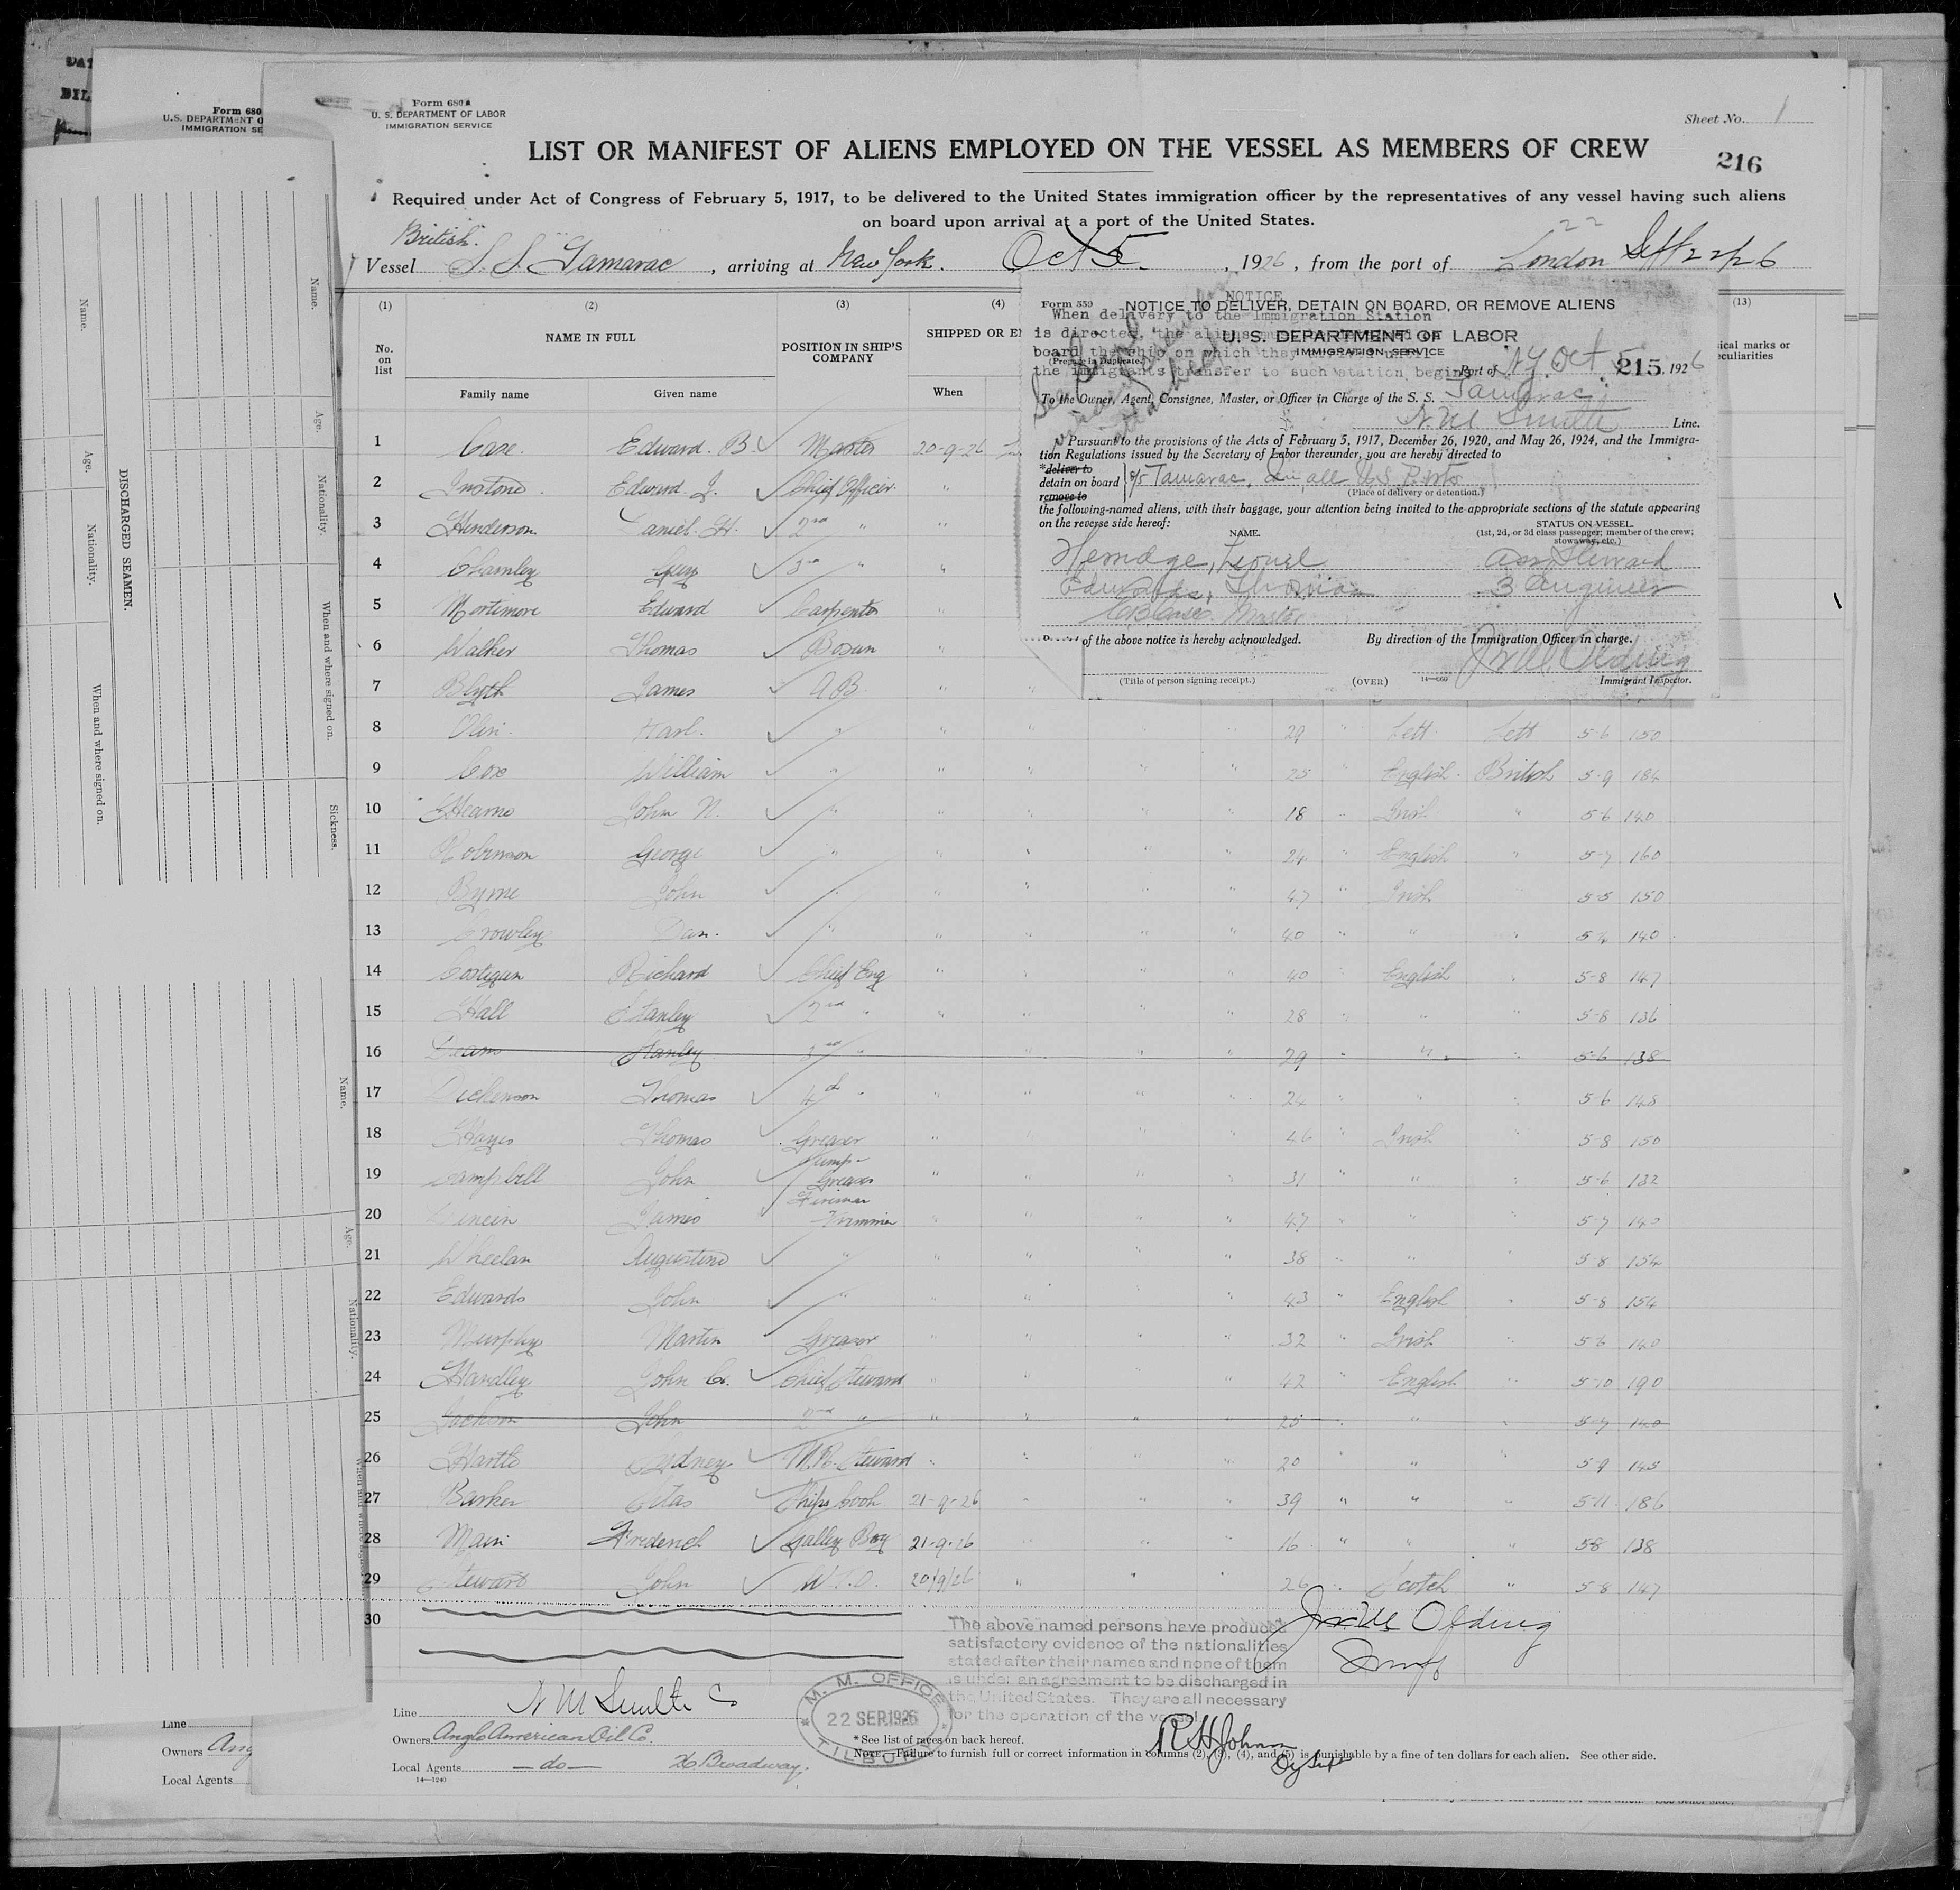 Form 680
U.S. DEPARTMENT O
IMMIGRATION SE
Form 680
U. S. DEPARTMENT OF LABOR
IMMIGRATION SERVICE
Sheet No. 1
LIST OR MANIFEST OF ALIENS EMPLOYED ON THE VESSEL AS MEMBERS OF CREW
216
Required under Act of Congress of February 5, 1917, to be delivered to the United States immigration officer by the representatives of any vessel having such aliens
on board upon arrival at a port of the United States.
British.
22
Vessel S. S. Tamarac, arriving at New York. Oct 5., 1926, from the port of London Sept 22/26
(1) (2) (3) (4) (13)
No. on list
NAME IN FULL
Family name Given name
POSITION IN SHIP'S COMPANY
SHIPPED OR E
When
ical marks or
eculiarities
Form 559 NOTICE TO DELIVER, DETAIN ON BOARD, OR REMOVE ALIENS
NOTICE
When delivery to the Immigration Station
is directed, the aliens
U. S. DEPARTMENT OF LABOR
IMMIGRATION SERVICE
board the ship on which they
(Prepare in Duplicate.)
the immigrants transfer to such station begins
Port of NY Oct 5 215, 1926
To the Owner, Agent, Consignee, Master, or Officer in Charge of the S. S. Tamarac
N. M. Smith Line.
Pursuant to the provisions of the Acts of February 5, 1917, December 26, 1920, and May 26, 1924, and the Immigra-
tion Regulations issued by the Secretary of Labor thereunder, you are hereby directed to
*deliver to
detain on board
remove to
Tamarac, all U.S. Ports
(Place of delivery or detention.)
the following-named aliens, with their baggage, your attention being invited to the appropriate sections of the statute appearing
on the reverse side hereof:
NAME.
STATUS ON VESSEL.
(1st, 2d, or 3d class passenger; member of the crew;
stowaway, etc.)
Herridge, Lionel Ass Steward
Edwards, Thomas 3 Engineer
E B Case Master
of the above notice is hereby acknowledged.
By direction of the Immigration Officer in charge.
(Title of person signing receipt.) (OVER) 14—660 Immigrant Inspector.
1 Case. Edward. B. Master 20-9-26
2 Instone. Edward J. Chief Officer "
3 Henderson Daniel. H. 2nd " "
4 Chamley Guy 3rd " "
5 Mortimore Edward Carpenter "
6 Walker Thomas Bosun "
7 Blyth James A.B. " "
8 Olin. Karl. " " " " " 29 " Lett Lett 5-6 150
9 Cox William " " " " " 25 " English British 5-9 184
10 Hearne John N. " " " " " 18 " Irish " 5-6 140
11 Robinson George " " " " " 24 " English " 5-7 160
12 Byrne John " " " " " 47 " Irish 5-5 150
13 Crowley Dan. " " " " " 40 " " " 5-4 140
14 Costigan Richard Chief Eng " " " " 40 " English " 5-8 147
15 Hall Stanley 2nd " " " " " 28 " " " 5-8 136
16 Deans Stanley 3rd " " " " 29 " " " 5-6 138
17 Dickenson Thomas 4th " " " " " 24 " " " 5-6 148
18 Hayes Thomas Greaser " " " " 46 " Irish 5-8 150
19 Campbell John Pump- Greaser " " " " 31 " " " 5-6 132
20 James Fireman Trimmer " " " " 47 " " " 5-7 140
21 Wheelan Augustine " " " " " 38 " " " 5-8 154
22 Edwards John " " " " " 43 " English " 5-8 154
23 Murphy Martin Greaser " " " " 32 " Irish " 5-6 140
24 Handley John C. Chief Steward " " " " 42 " English " 5-10 190
25 Jackson John 2nd " " " " " 25 " " " 5-7 140
26 Hartle Sydney M.R. Steward " " " " 20 " " " 5-9 145
27 Barker Silas Ships Cook 21-9-26 " " " 39 " " 5-11 186
28 Main Frederick Galley Boy 21-9-26 " " " 16 " " " 5-8 138
29 Stewart John W.T.O. 20/9/26 " " " 26 " Scotch " 5-8 147
30
The above named persons have produced
satisfactory evidence of the nationalities
stated after their names and none of them
is under an agreement to be discharged in
the United States. They are all necessary
for the operation of the vessel.
Line N M Smith Co
M. M. OFFICE
22 SEP. 1926
TILBURY
Owners Anglo American Oil Co.
Local Agents — do — 26 Broadway.
14—1240
* See list of races on back hereof.
NOTE.—Failure to furnish full or correct information in columns (2), (3), (4), and (5) is punishable by a fine of ten dollars for each alien. See other side.
R H Johnson
Name.
Age.
Nationality.
When and where signed on.
DISCHARGED SEAMEN.
Name.
Age.
Nationality.
When and where signed on.
Sickness.
Name.
Age.
Nationality.
Line
Owners Ang
Local Agents